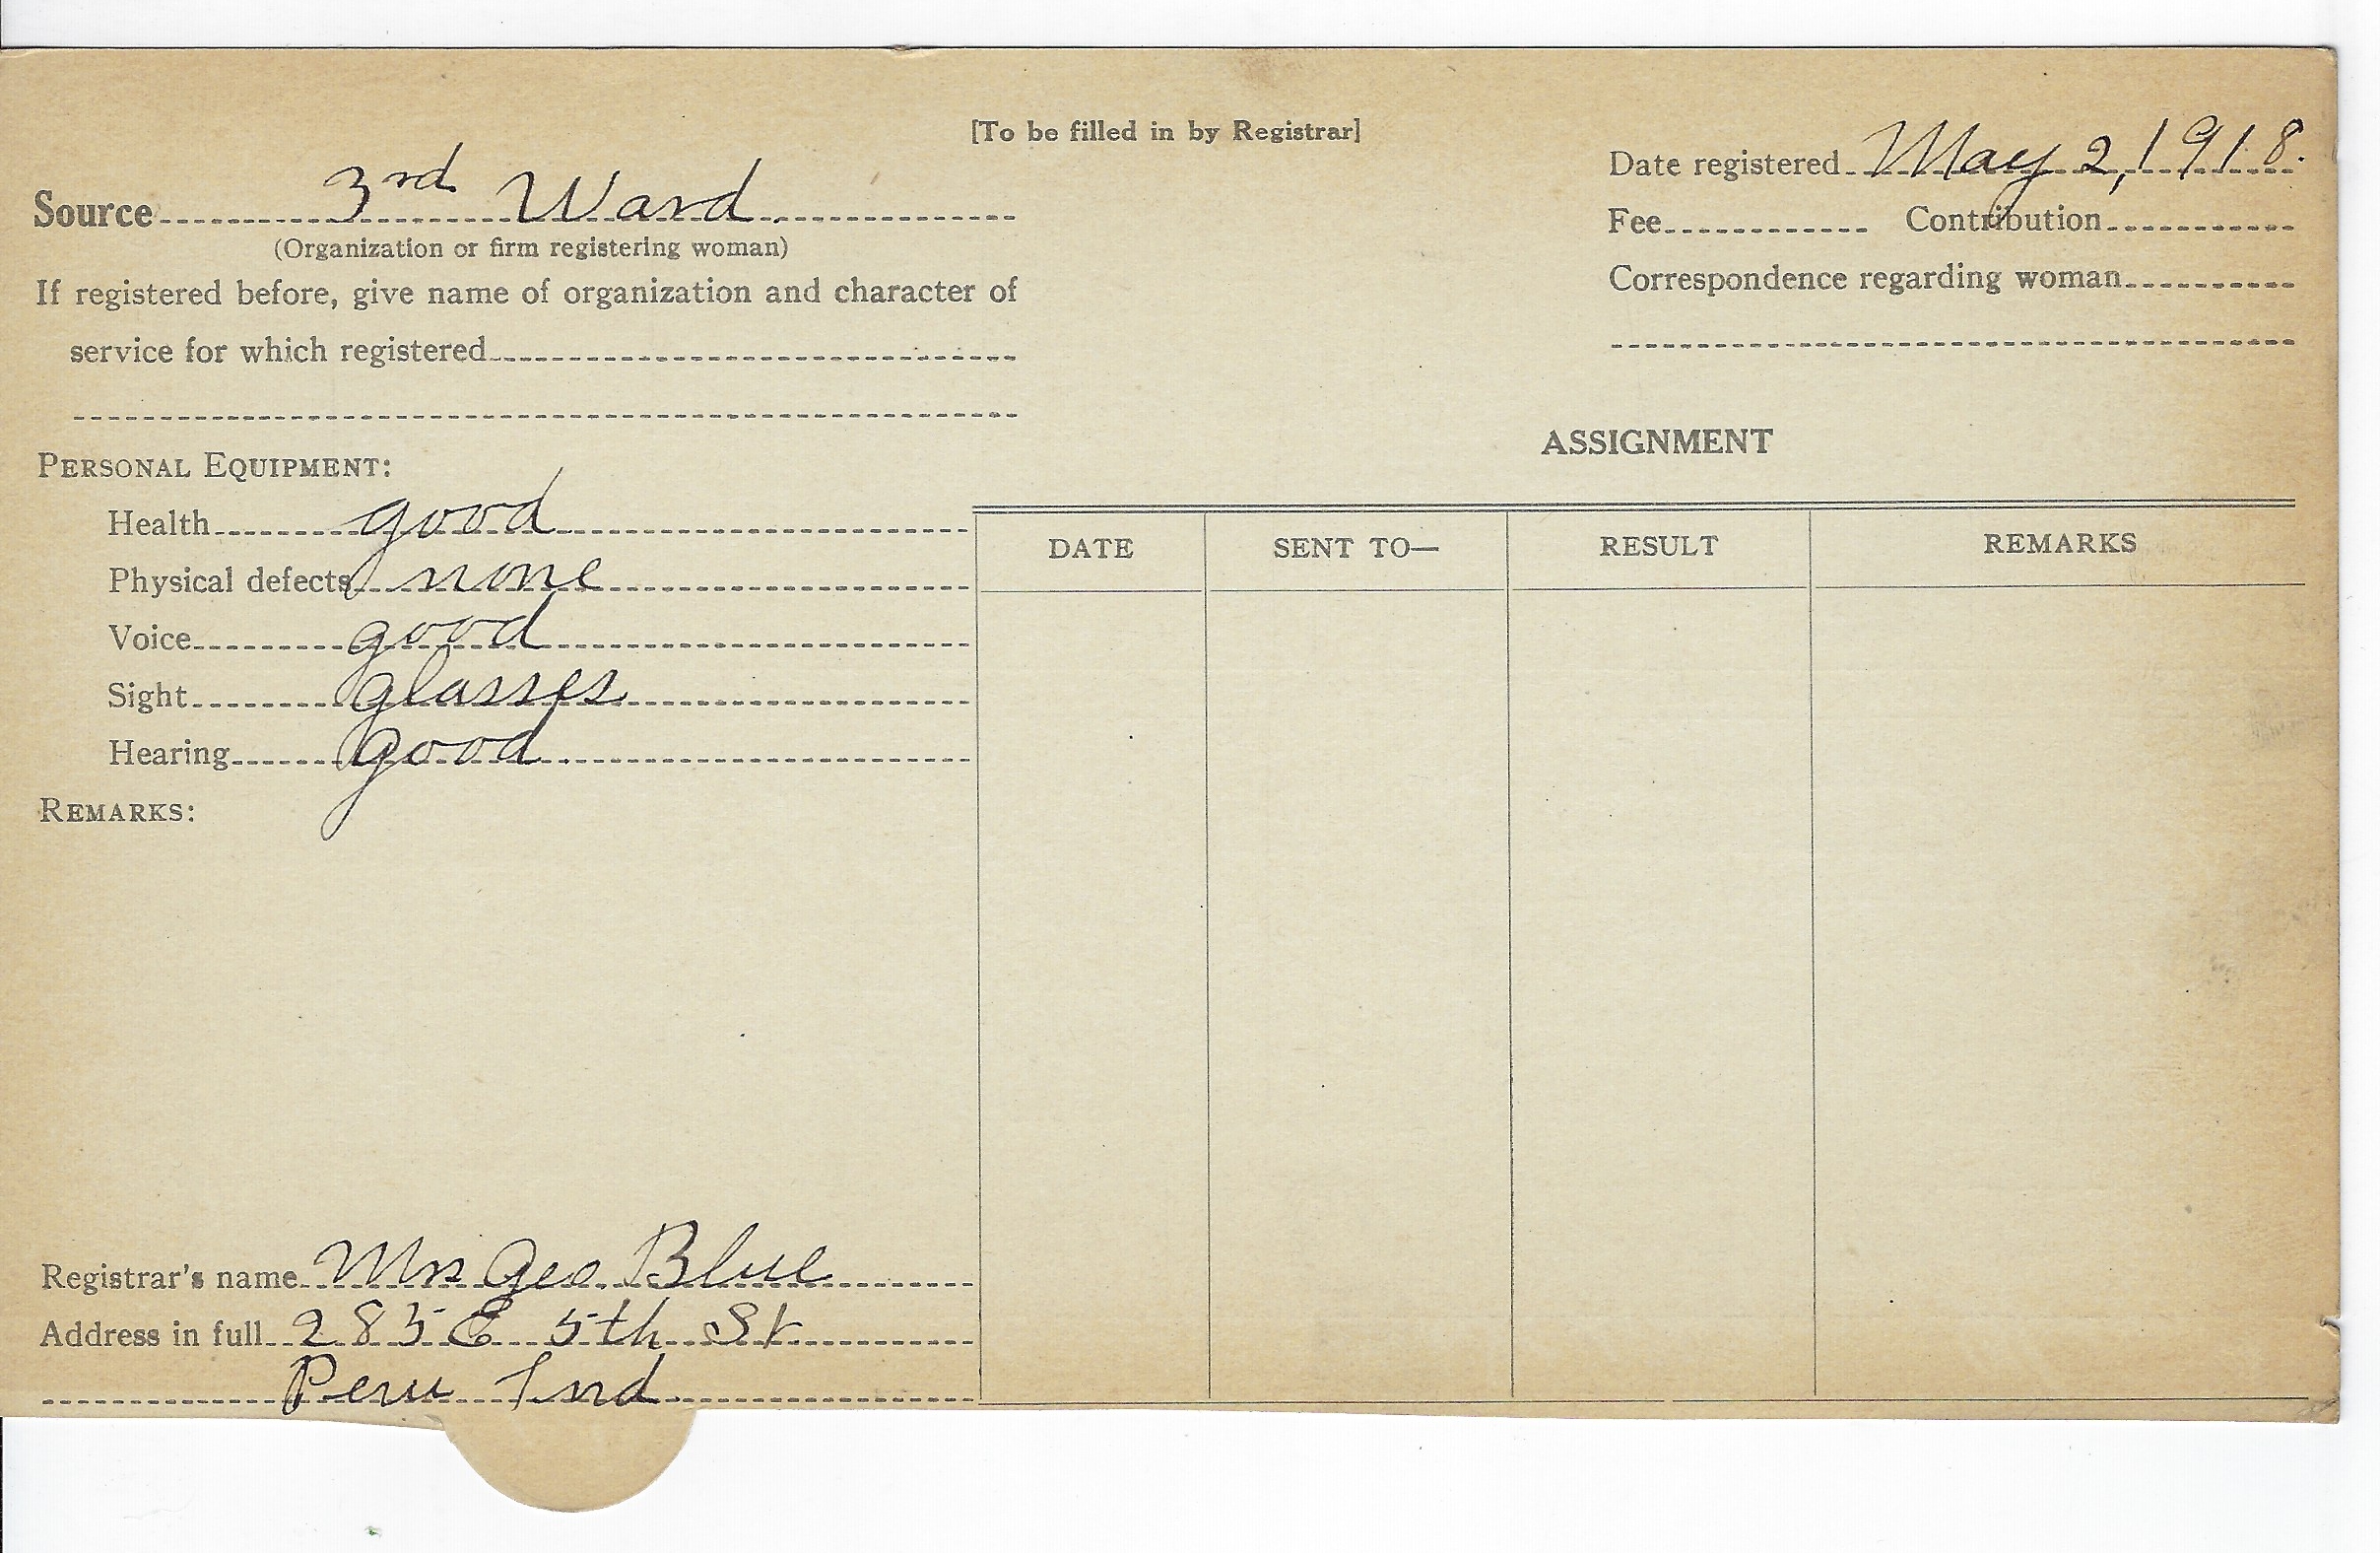 [To be filled in by Registrar]
Date registered May 2, 1918.
Source 3rd Ward.
(Organization or firm registering woman)
Fee Contribution
If registered before, give name of organization and character of
service for which registered
Correspondence regarding woman
ASSIGNMENT
PERSONAL EQUIPMENT:
Health good
Physical defects none
Voice good
Sight glasses
Hearing good
DATE SENT TO— RESULT REMARKS
REMARKS:
Registrar's name Mrs Geo Blue
Address in full 285 E 5th St
Peru Ind